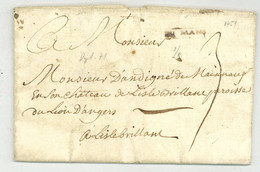 A Monsieur
LE MANS
Monsieur Dandigné de Mainneuf
En Son Château de L'isle Brillane paroisse
du Lion d'angers
A L'islebrillant